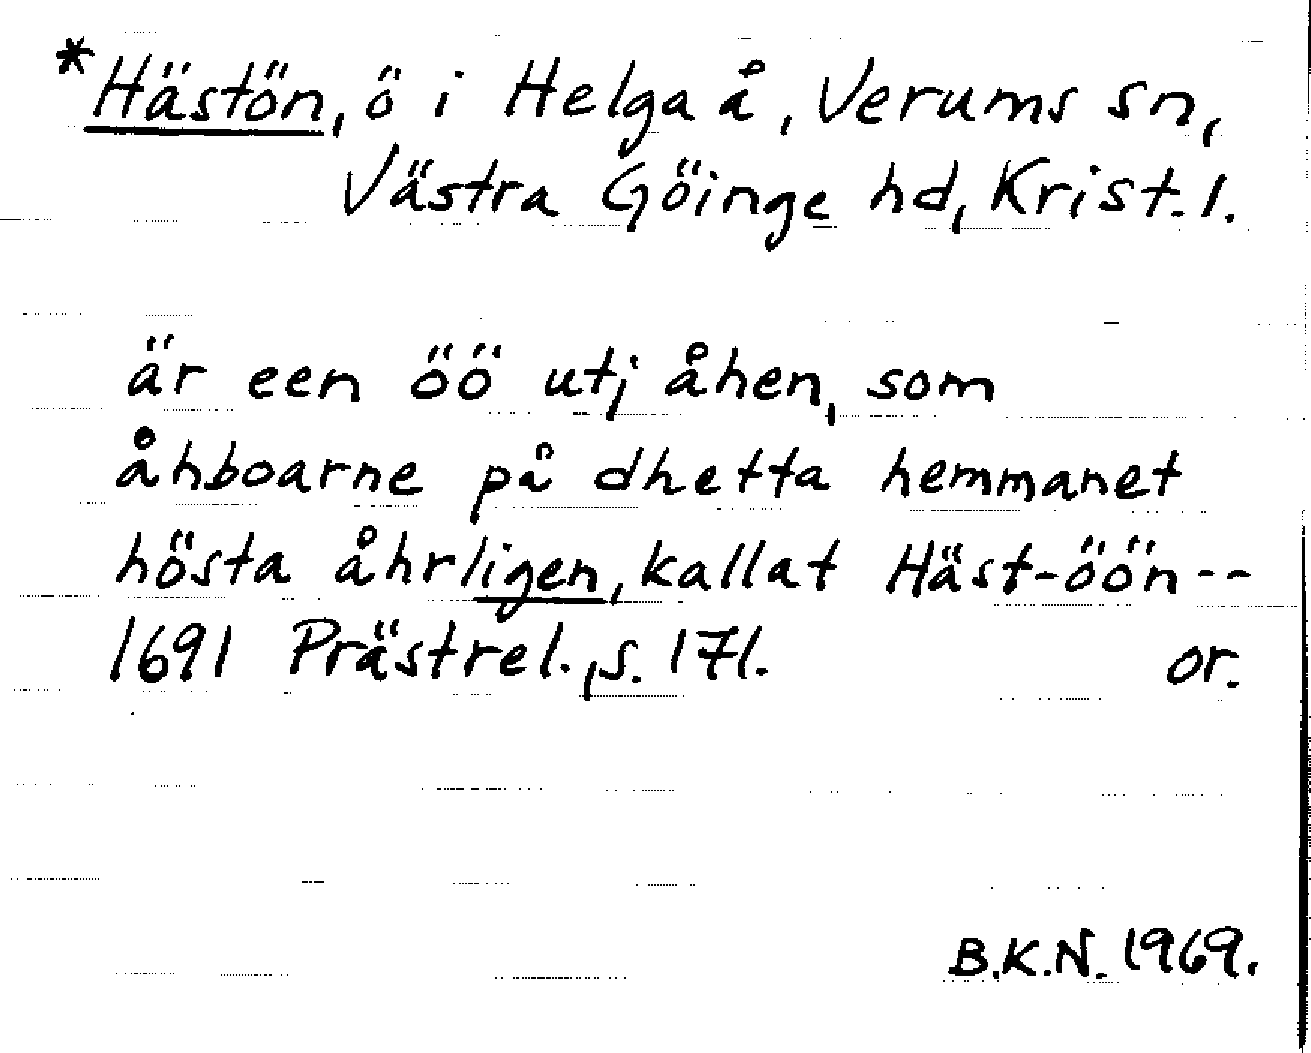 *Hästön, ö i Helga å, Verums sn,
Västra Göinge hd, Krist. l.
är een öö utj åhen, som
åhboarne på dhetta hemmanet
hösta åhrligen, kallat Häst-öön--
1691 Prästrel., s. 171. or.
B.K.N. 1969.